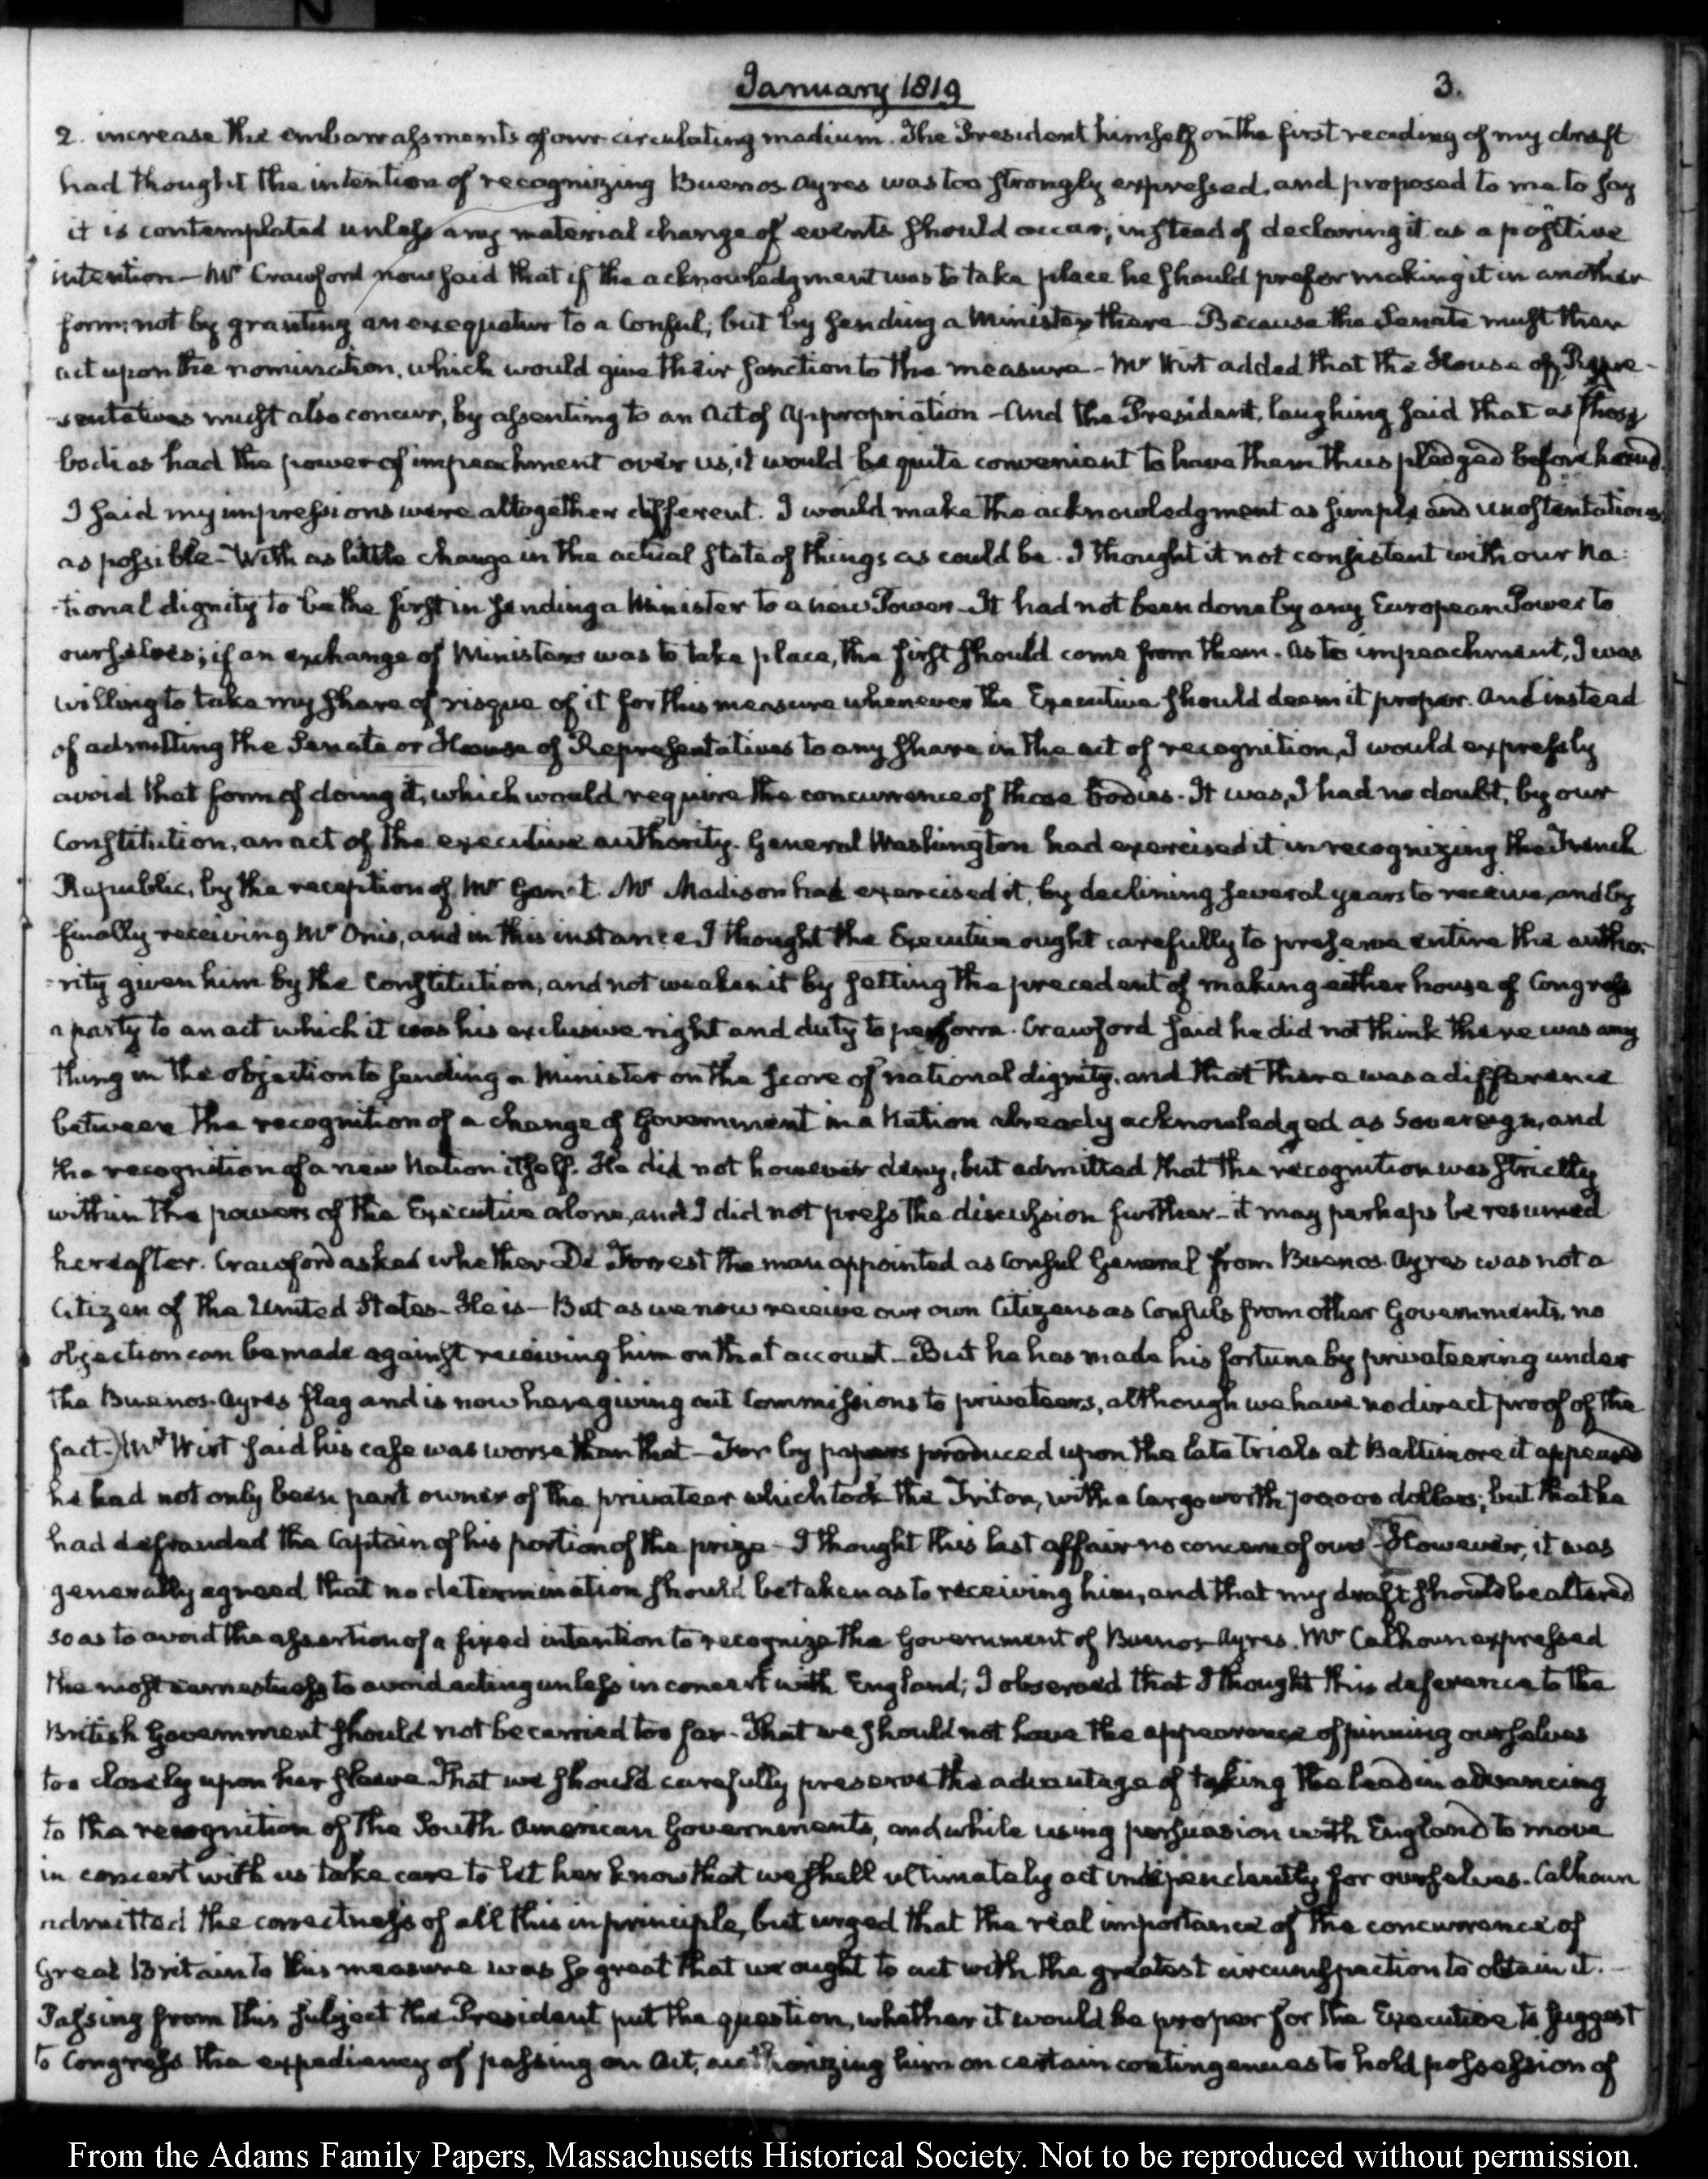 January 1819
3.
2. increase the embarrassments of our circulating medium. The President himself on the first reading of my draft
had thought the intention of recognizing Buenos Ayres was too strongly expressed, and proposed to me to say
it is contemplated unless any material change of events should occur; instead of declaring it as a positive
intention — Mr Crawford now said that if the acknowledgment was to take place he should prefer making it in another
form; not by granting an exequatur to a Consul; but by sending a Minister there — Because the Senate must then
act upon the nomination, which would give their sanction to the measure — Mr Wirt added that the House of Repre-
-sentatives must also concur, by assenting to an Act of Appropriation — And the President, laughing said that as those
bodies had the power of impeachment over us, it would be quite convenient to have them thus pledged before hand.
I said my impressions were altogether different. I would make the acknowledgment as simple and unostentatious
as possible — With as little change in the actual state of things as could be. I thought it not consistent with our Na-
-tional dignity to be the first in sending a Minister to a new Power — It had not been done by any European Power to
ourselves; if an exchange of Ministers was to take place, the first should come from them. As to impeachment, I was
willing to take my share of risque of it for this measure whenever the Executive should deem it proper. And instead
of admitting the Senate or House of Representatives to any share in the act of recognition, I would expressly
avoid that form of doing it, which would require the concurrence of those bodies. It was, I had no doubt, by our
Constitution, an act of the executive authority. General Washington had exercised it in recognizing the French
Republic, by the reception of Mr Genet. Mr Madison had exercised it, by declining several years to receive, and by
finally receiving Mr Onis, and in this instance I thought the Executive ought carefully to preserve entire the autho-
-rity given him by the Constitution, and not weaken it by setting the precedent of making either house of Congress
a party to an act which it was his exclusive right and duty to perform. Crawford said he did not think there was any
thing in the objection to sending a Minister on the score of national dignity, and that there was a difference
between the recognition of a change of Government in a Nation already acknowledged as Sovereign, and
the recognition of a new Nation itself. He did not however deny, but admitted that the recognition was strictly
within the powers of the Executive alone, and I did not press the discussion further — it may perhaps be resumed
hereafter. Crawford asked whether De Forrest the man appointed as Consul General from Buenos Ayres was not a
Citizen of the United States — He is — But as we now receive our own Citizens as Consuls from other Governments, no
objection can be made against receiving him on that account — But he has made his fortune by privateering under
the Buenos-Ayres flag and is now here giving out Commissions to privateers, although we have no direct proof of the
fact.) Mr Wirt said his case was worse than that — For by papers produced upon the late trials at Baltimore it appeared
he had not only been part owner of the privateer which took the Triton, with a Cargo worth 700000 dollars; but that he
had defrauded the Captain of his portion of the prize — I thought this last affair no concern of ours — However, it was
generally agreed that no determination should be taken as to receiving him, and that my draft should be altered
so as to avoid the assertion of a fixed intention to recognize the Government of Buenos-Ayres. Mr Calhoun expressed
the most earnestness to avoid acting unless in concert with England; I observed that I thought this deference to the
British Government should not be carried too far — That we should not have the appearance of pinning ourselves
too closely upon her sleeve. That we should carefully preserve the advantage of taking the lead in advancing
to the recognition of the South American Governments, and while using persuasion with England to move
in concert with us take care to let her know that we shall ultimately act independently for ourselves. Calhoun
admitted the correctness of all this in principle, but urged that the real importance of the concurrence of
Great Britain to this measure was so great that we ought to act with the greatest circumspection to obtain it. —
Passing from this subject the President put the question, whether it would be proper for the Executive to suggest
to Congress the expediency of passing an Act, authorizing him on certain contingencies to hold possession of
From the Adams Family Papers, Massachusetts Historical Society. Not to be reproduced without permission.